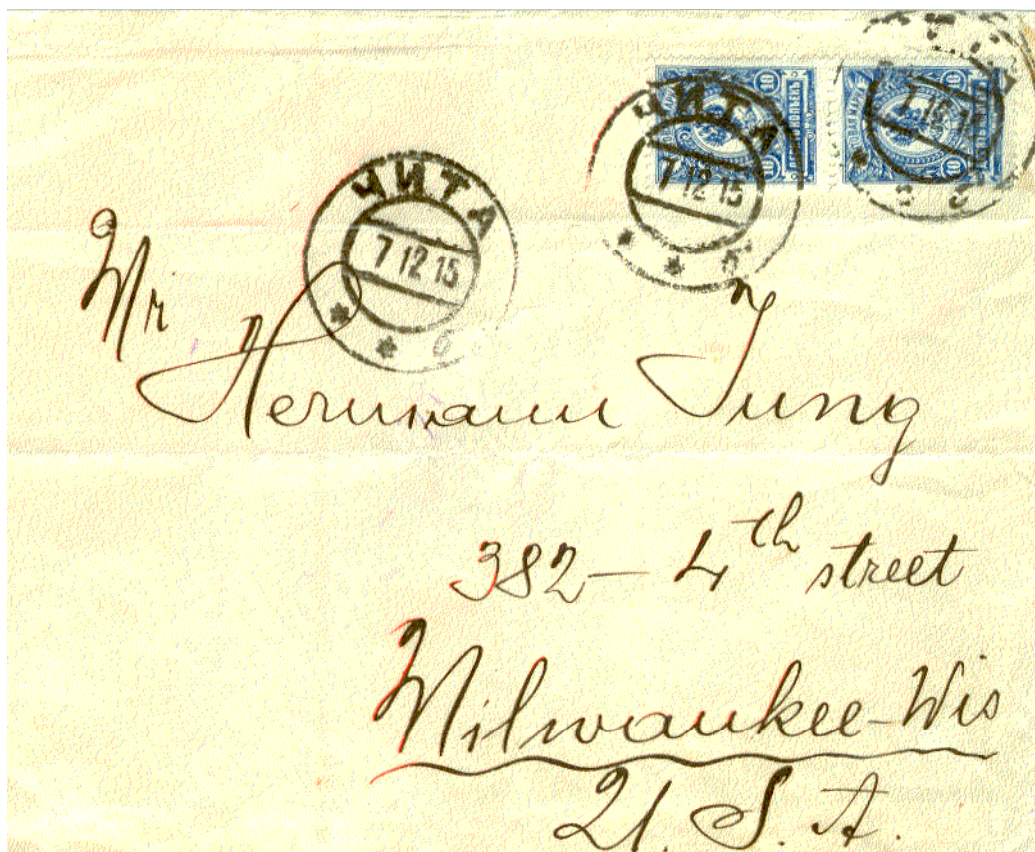 ЧИТА
7 12 15
б
ЧИТА
7 12 15
б
10
10
10
10
7 12 15
Mr
Hermann Jung
382 – 4th street
Milwaukee-Wis
U. S. A.